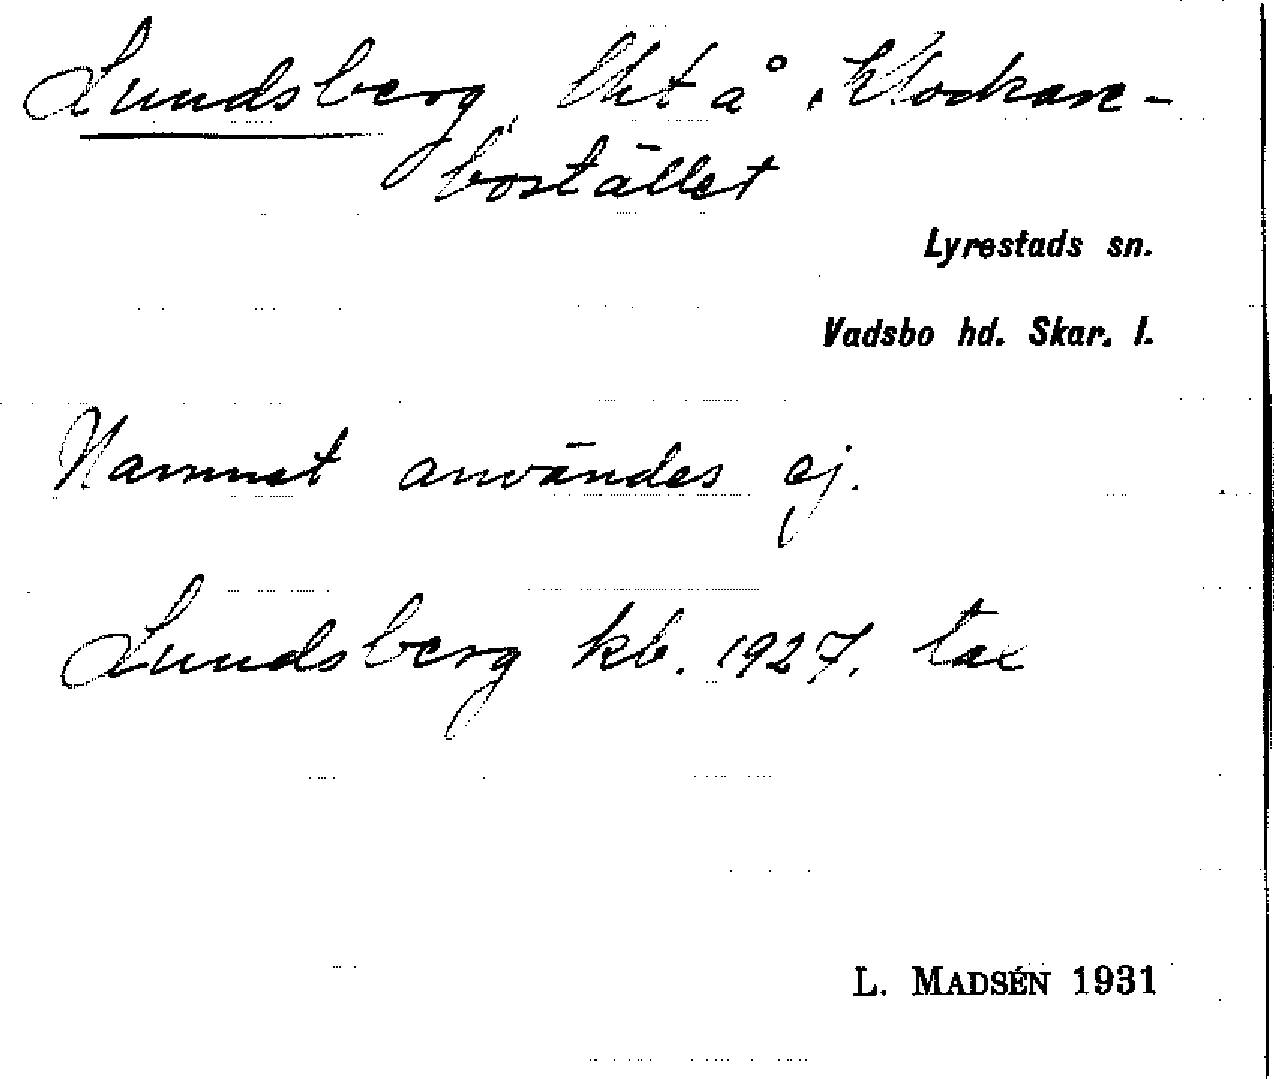 Lundsberg, lht å Klockare-
bostället
Lyrestads sn.
Vadsbo hd. Skar. l.
Namnet användes ej.
Lundsberg kb. 1927, tax
L. MADSÉN 1931